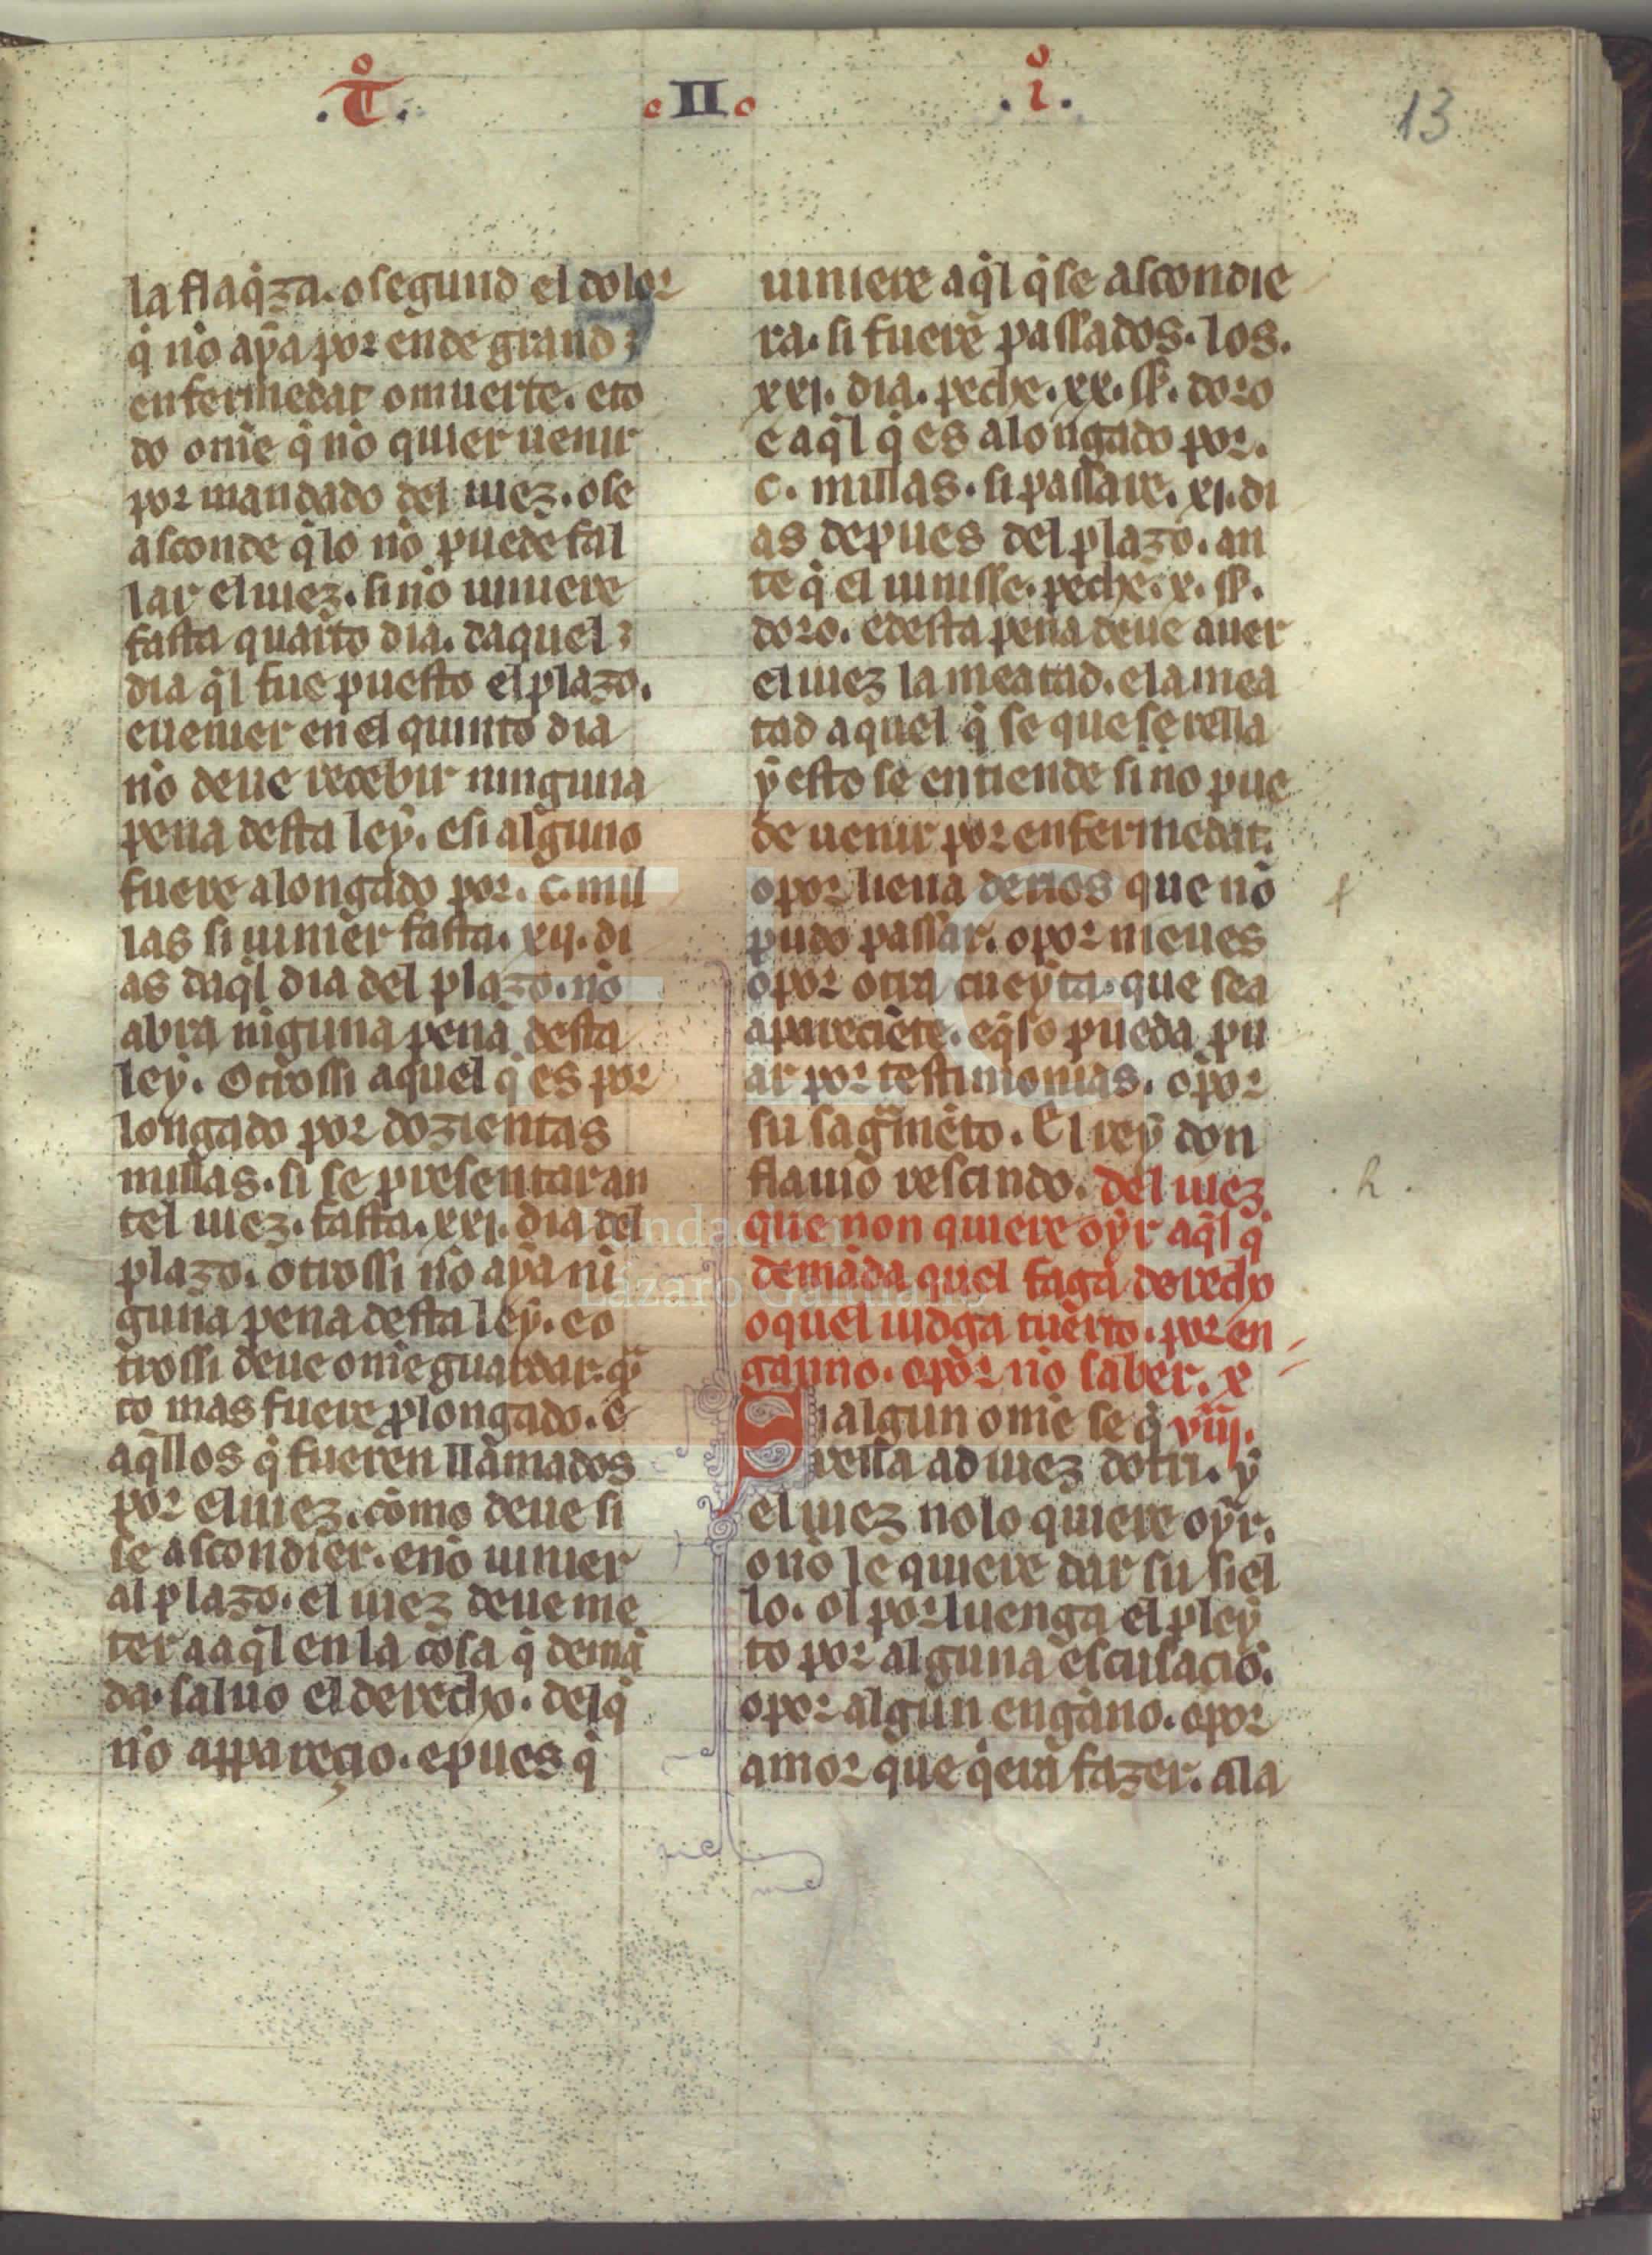 .T̊. .II. .i̊. 13
la flaq̇za. o segund el dolor
q̇ nõ aya por ende grand
enfermedat o muerte. e to
do om̃e q̇ nõ quier uenir
por mandado del iuez. o se
asconde q̇lo nõ puede fal
lar el iuez. si nõ uiniere
fasta quarto dia. daquel
dia q̇l fue puesto el plazo.
e uenier en el quinto dia
nõ deue recebir ninguna
pena desta ley. e si alguno
fuere alongado por. c. mil
las si uinier fasta. xij. di
as daq̇l dia del plazo. nõ
abra niguna pena desta
ley. Otrossi aquel q̇ es por
longado por dozientas
millas. si se presentar an
tel iuez. fasta. xxj. dia del
plazo. otrossi nõ aya ni
guna pena desta ley. e o
trossi deue om̃e guardar. qᵃ̃
to mas fuere ꝓlongado. e
aq̇llos q̇ fueren llamados
por el iuez. como deue si
se ascondier. e nõ uinier
al plazo. el iuez deue me
ter a aq̇l en la cosa q̇ demã
da. saluo el derecho. del q̇
nõ appareçio. e pues q̇
uiniere aq̇l q̇ se ascondie
ra. si fuerẽ passados. los.
xxj. dia. peche. xx. ss̃. doro
e aq̇l q̇ es alongado por.
c. millas. si passare. xj. di
as depues del plazo. an
te q̇ el uinisse. peche. x. ss̃.
doro. e desta pena deue auer
el iuez la meatad. e la mea
tad aquel q̇ se que se rella
y esto se entiende si no pue
de uenir por enfermedat.
o por llena de rios que nõ
pudo passar. o por nieues
o por otra cueyta. que sea
apareciẽte. e q̇ lo pueda pu
ar por testimonias. o por
su sagᵃmẽto. El rey don
flauio rescindo. del iuez
que non quiere oyr aq̇l q̇
demãda quel faga derecho
o quel iudga tuerto. por en
ganno. o por nõ saber. x
Si algun om̃e se q̇ viij.
rella ad iuez dotri. y
el iuez no lo quiere oyr.
o nõ le quiere dar su siel
lo. ol por luenga el pley
to por alguna escusaciõ.
o por algun engano. o por
amor que q̇era fazer. a la
.h.